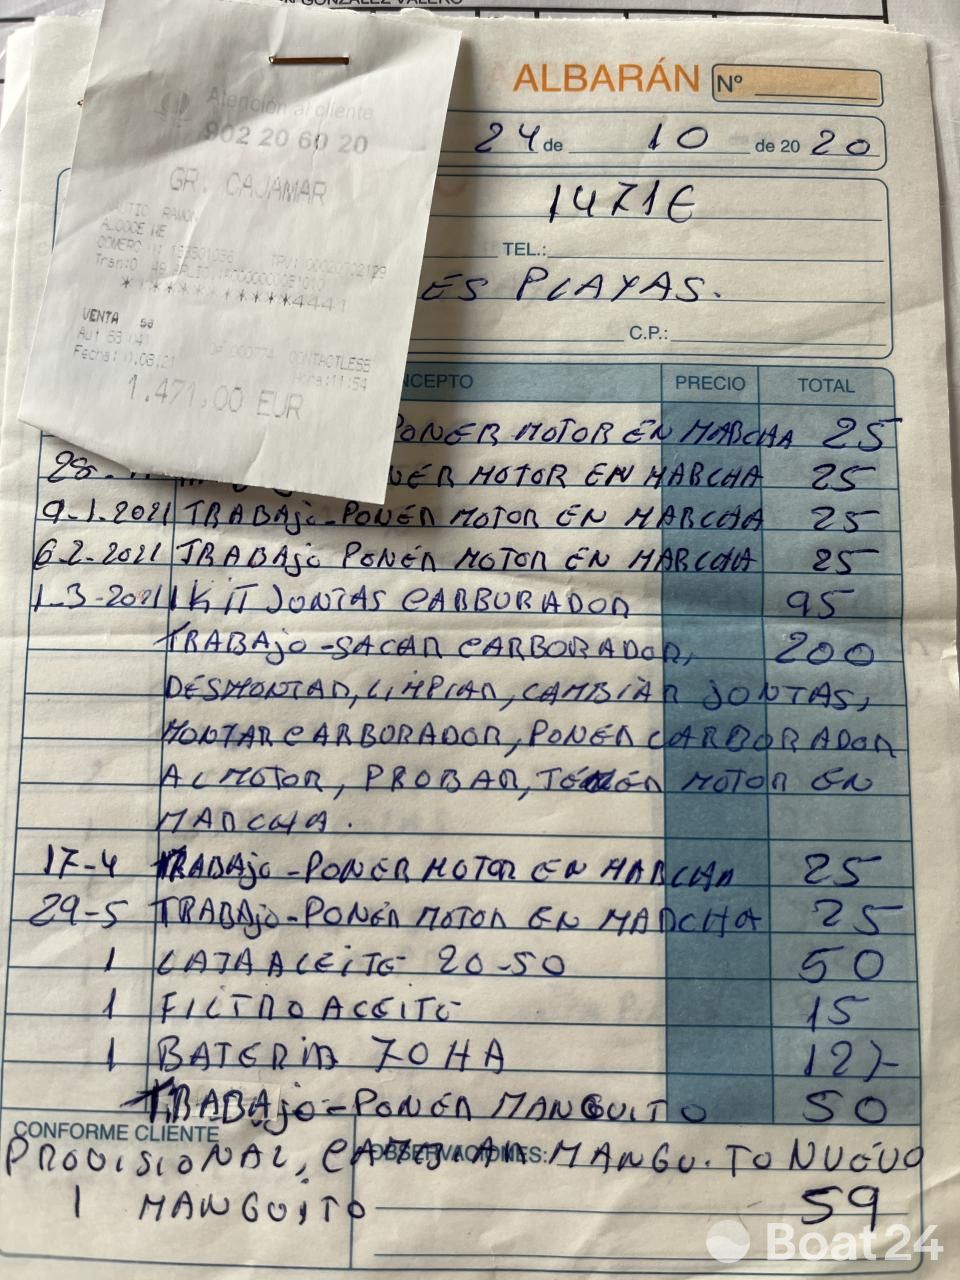 GONZALEZ VALERO
ALBARÁN Nº
24 de 10 de 20 20
1471€
TEL.:
ES PLAYAS.
C.P.:
Atención al cliente
902 20 60 20
GR. CAJAMAR
RAMON
************4441
VENTA
CONTACTLESS
Hora:11:54
1.471,00 EUR
NCEPTO PRECIO TOTAL
PONER MOTOR EN MARCHA 25
28- NER MOTOR EN MARCHA 25
9-1-2021 TRABAJO-PONER MOTOR EN MARCHA 25
6-2-2021 TRABAJO PONER MOTOR EN MARCHA 25
1-3-2021 1 KIT JONTAS CARBURADOR 95
TRABAJO-SACAR CARBORADOR, 200
DESMONTAR, LIMPIAR, CAMBIAR JONTAS,
MONTAR CARBORADOR, PONER CARBORADOR
AL MOTOR, PROBAR, MOTOR EN
MARCHA.
17-4 TRABAJO-PONER MOTOR EN MARCHA 25
29-5 TRABAJO-PONER MOTOR EN MARCHA 25
1 LATA ACEITE 20-50 50
1 FILTRO ACEITE 15
1 BATERIA 70HA
TRABAJO-PONER MANGUITO 50
CONFORME CLIENTE
OBSERVACIONES:
PROVISIONAL, CAMBIAR MANGUITO NUEVO
1 MANGUITO 59
Boat24